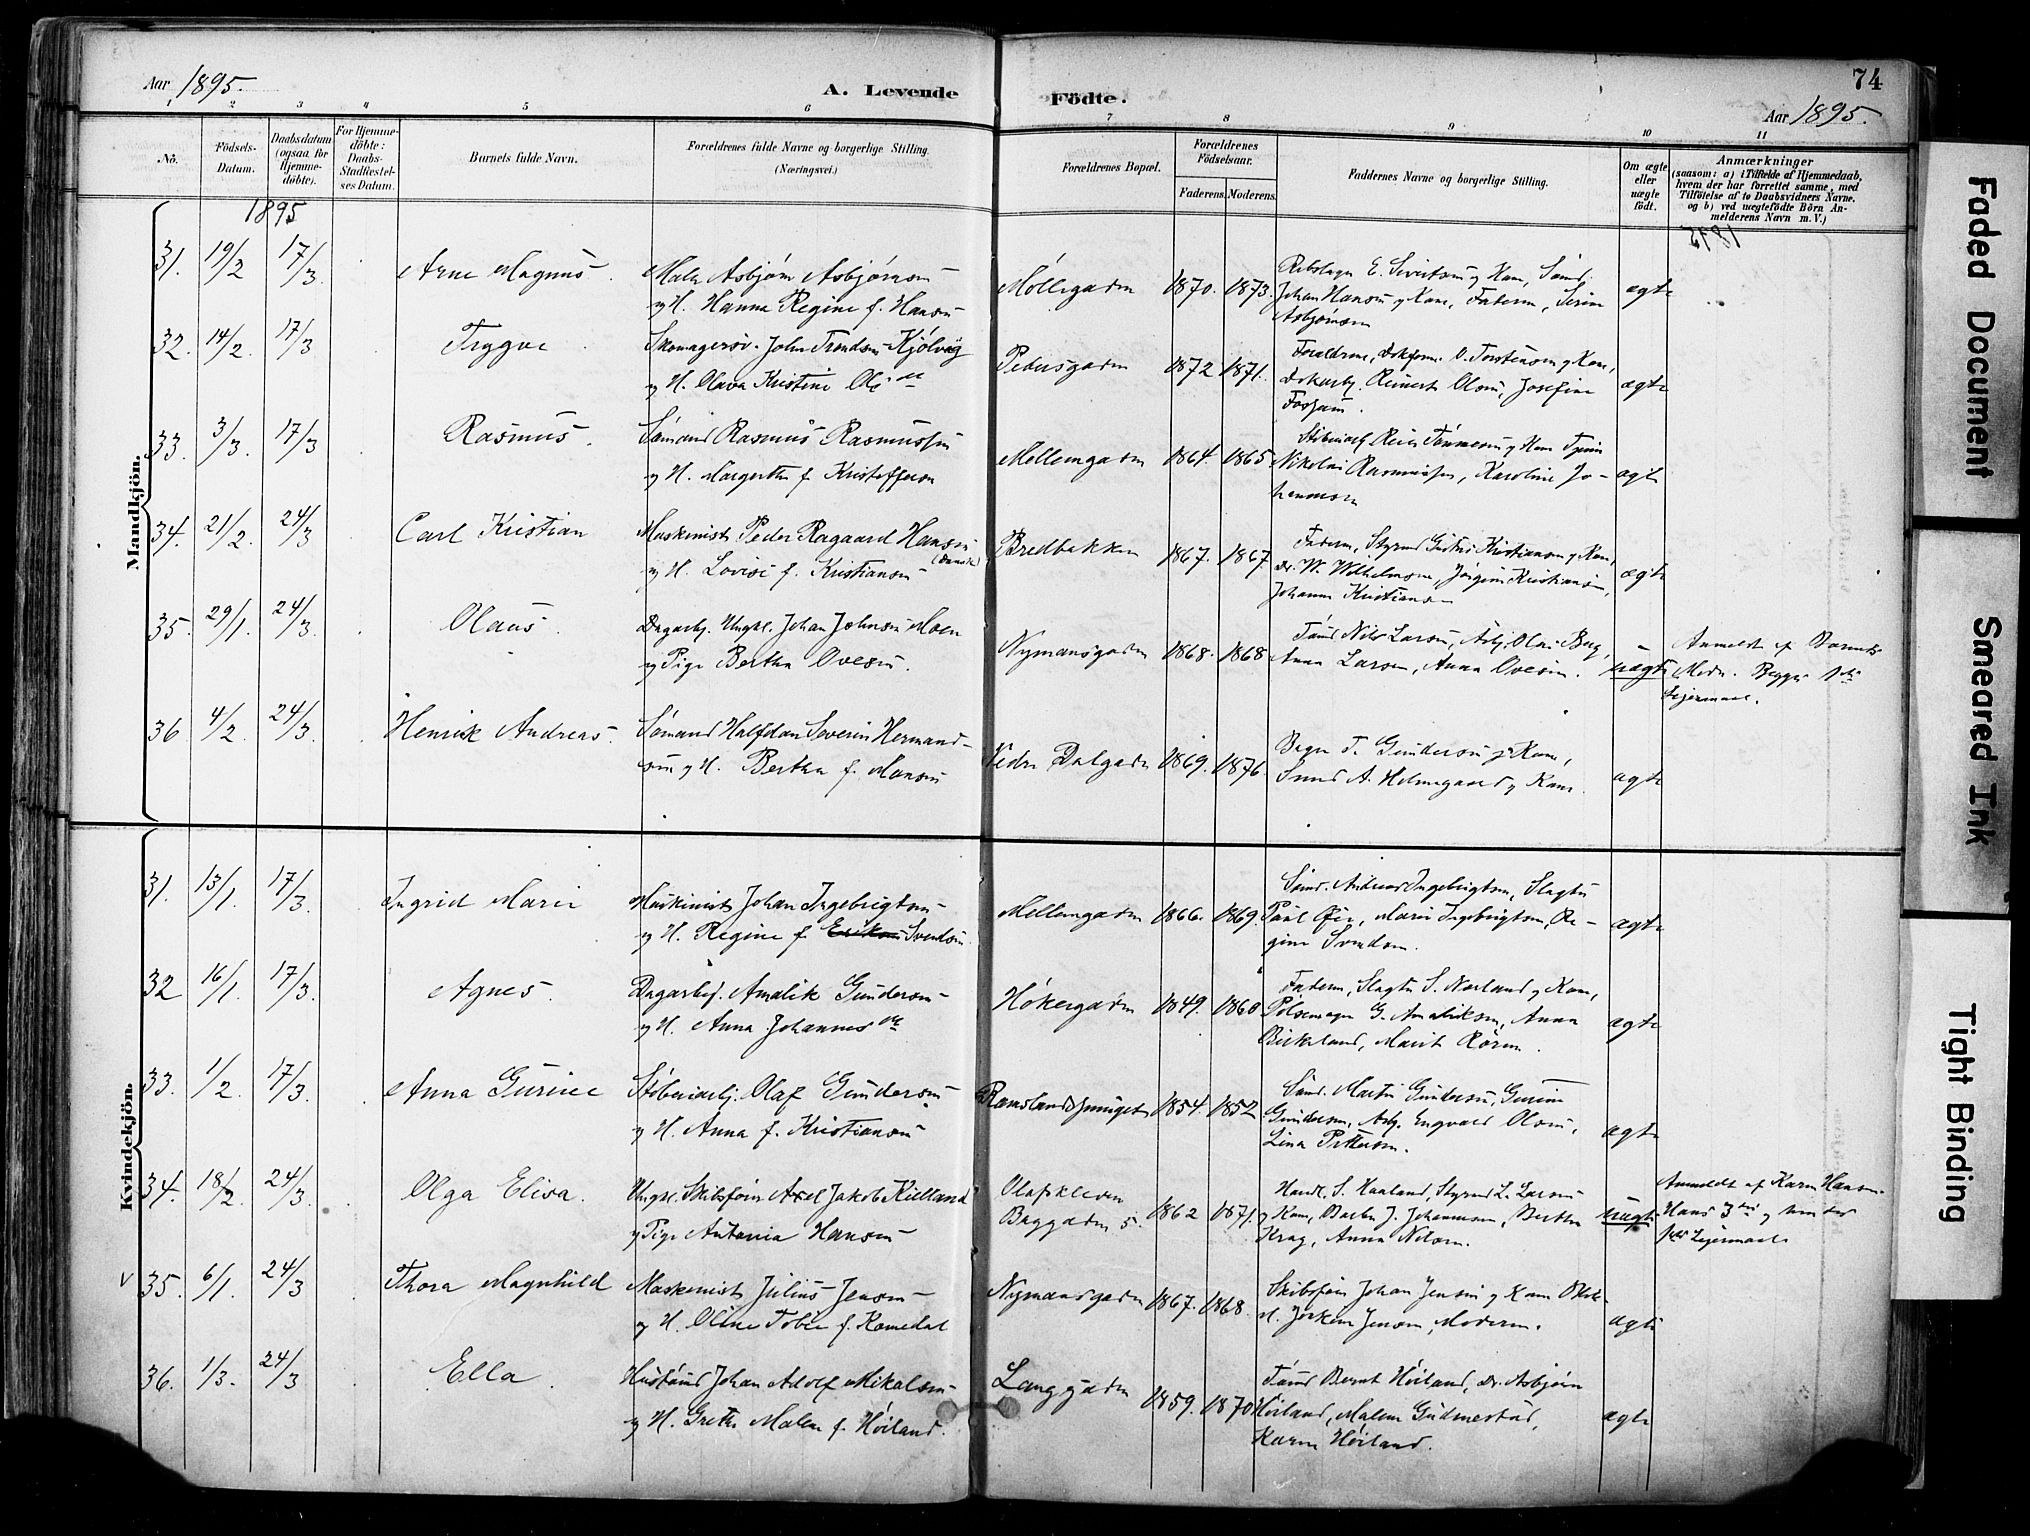 Aar 1895.
A. Levende Födte.
74
Aar 1895.
1 2 3 4 5 6 7 8 9 10 11
No.
Födsels-Datum.
Daabsdatum (ogsaa for Hjemme-döbte).
For Hjemme-döbte: Daabs-Stadfæstel-ses Datum.
Barnets fulde Navn.
Forældrenes fulde Navne og borgerlige Stilling.
(Næringsvei.)
Forældrenes Bopæl.
Forældrenes Födselsaar.
Faderens. Moderens.
Faddernes Navne og borgerlige Stilling.
Om ægte eller uægte födt.
Anmærkninger
(saasom: a) i Tilfælde af Hjemmedaab,
hvem der har forrettet samme, med
Tilföielse af to Daabsvidners Navne.
og b) ved uægtefödte Börn An-
melderens Navn m. V.)
1895
Mandkjön.
31. 19/2 17/3 Arne Magnus. Asbjørn Asbjørnsen
og H. Hanne Regine f. Hansen
Møllegaden 1870. 1873.
E. Sivertsen og Kone, Sømd.
Johan Hansen og Kone, Faderen, Serine
Asbjørnsen
ægte
32. 14/2. 17/3 Trygve Skomagersv. John Trondsen Kjølvig
og H. Olava Kristine Ols. de
Pedersgaden 1872 1871.
Forældrene, O. Torstensen og Kone,
Reinert Olsen, Josefine
ægte
33. 3/3. 17/3 Rasmus. Sømand Rasmus Rasmussen
og H. Margrethe f. Kristoffersen
Mellemgaden 1864. 1865
Støberiarb. Tønnesen og Kone
Nikolai Rasmussen, Karoline Jo-
hannesen
ægte
34. 21/2. 24/3 Carl Kristian Maskinist Peder Ragaard Hansen
(Dansk)
og H. Lovise f. Kristiansen
Bredbakken 1867. 1867
Faderen, Styrmd Gustav Kristiansen og Kone,
Do. W. Wilhelmsen, Jørgine Kristiansen,
Johanne Kristiansen
ægte
35. 29/1. 24/3. Olaus. Dagarbj. Ungkl. Johan Johnsen Moen
og Pige Bertha Ovesen.
Nymansgaden 1868. 1868
Tømd Nils Larsen, Arbj. Olai Berg,
Anna Larsen, Anna Ovesen.
uægte
Anmeldt af Barnets
Moder. Begges 1ste
Leiermaal.
36 4/2. 24/3. Henrik Andreas. Sømand Halfdan Severin Hermand-
sen og H. Bertha f. Monsen
Vedre Dalgaden 1869. 1876.
T. Gundersen og Kone,
A. Helmegaard og Kone.
ægte
Kvindekjön.
31. 13/1. 17/3. Ingrid Marie Maskinist Johan Ingebrigtsen
og H. Regine f. Svendsen
Mellemgaden 1866. 1869.
Sømd. Andreas Ingebrigtsen, Slagter
Paul Øie, Marie Ingebrigtsen, Re-
gine Svendsen.
ægte
32 16/1. 17/3. Agnes. Dagarbej. Amalik Gundersen
og H. Anna Johannes de
Høkergaden 1849. 1860
Faderen, Slagter S. Nærland og Kone,
Pølsemager G. Amaliksen, Anna
Birkeland, Marit Røren.
ægte
33. 1/2. 17/3. Anna Gurine Støberiarbj. Olaf Gundersen
og H. Anna f. Kristiansen
1854. 1852.
Sømd. Martin Gundersen, Gurine
Gundersen, Arbj. Engvald Olsen,
Lina Pettersen.
ægte
34. 18/2. 24/3. Olga Elisa. Ungkl. Skibsfører Axel Jakob Kielland
og Pige Antonia Hansen
Olafskleven
Baggaden 5. 1862 1871.
Handl. S. Haaland, Styrmd L. Larsen
og Kone, Barber J. Johannesen, Berthe
Krag, Anna Nilsen.
uægte
Anmeldt af Karen Hansen.
Hans 3die og hendes
1ste Leiermaal.
V 35. 6/1. 24/3 Thora Magnhild Maskinist Julius Jensen
og H. Oline Tobie f. Komedal
Nymansgaden 1867. 1868.
Skibsfører Johan Jensen og Kone,
M. Jørken Jensen, Moderen.
ægte
36. 1/3. 24/3 Ella. Hustømd Johan Adolf Mikalsen
og H. Grethe Malen f. Høiland.
Langgaden 1859. 1870
Tømd Bernt Høiland, Do. Asbjørn
Høiland, Malene Gudmestad,
Karen Høiland.
ægte
Faded Document
Smeared Ink
Tight Binding